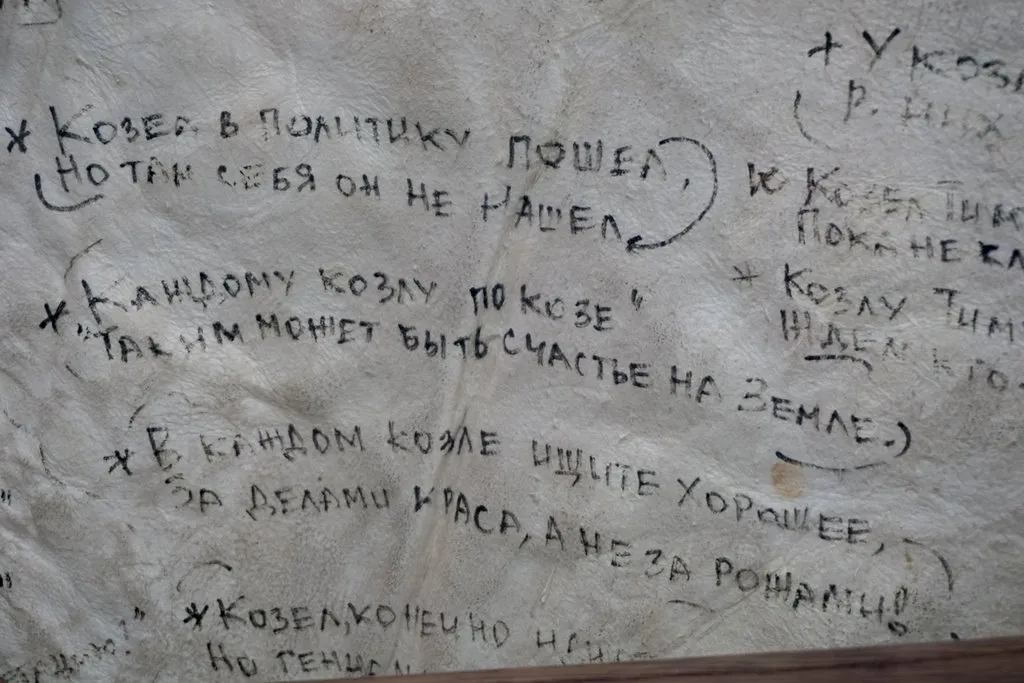 * КОЗЕЛ В ПОЛИТИКУ ПОШЕЛ,
НО ТАМ СЕБЯ ОН НЕ НАШЕЛ
* КАЖДОМУ КОЗЛУ ПО КОЗЕ"
"ТАКИМ МОЖЕТ БЫТЬ СЧАСТЬЕ НА ЗЕМЛЕ.)
* В КАЖДОМ КОЗЛЕ ИЩИТЕ ХОРОШЕЕ,
ЗА ДЕЛАМИ КРАСА, А НЕ ЗА РОЖАМИ!
* КОЗЕЛ, КОНЕЧНО
НО
+ У КОЗЛ
КОЗЕЛ ТИМ
ПОКА НЕ КЛ
* КОЗЛУ ТИМ
ЖДЕМ КТО-